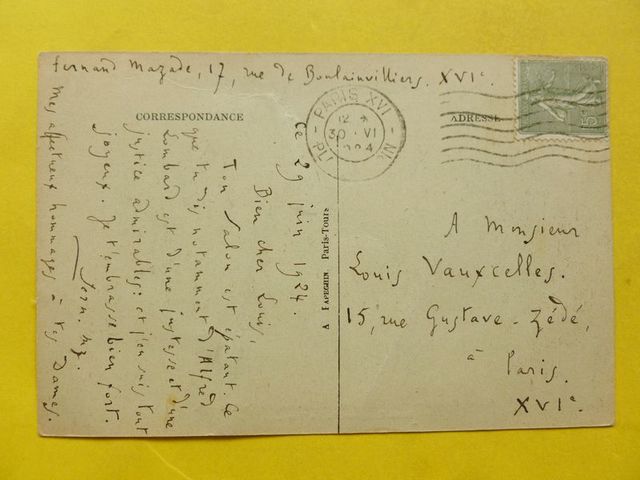 Fernand Mazade, 17, rue de Boulainvilliers. XVIe.
CORRESPONDANCE
ADRESSE
PARIS XVI
12 *
30 VI
1924
15c
Ce 29 juin 1924.
Bien cher Louis,
Ton Salon est épatant. Ce
que tu dis notamment d'Alfred
Lombard est d'une justesse et d'une
justice admirables: et j'en suis tout
joyeux. Je t'embrasse bien fort.
Fern. Mz.
Mes affectueux hommages à tes Dames.
A PAPEGHIN Paris-Tours
A Monsieur
Louis Vauxcelles.
15, rue Gustave-Zédé,
à
Paris.
XVIe.